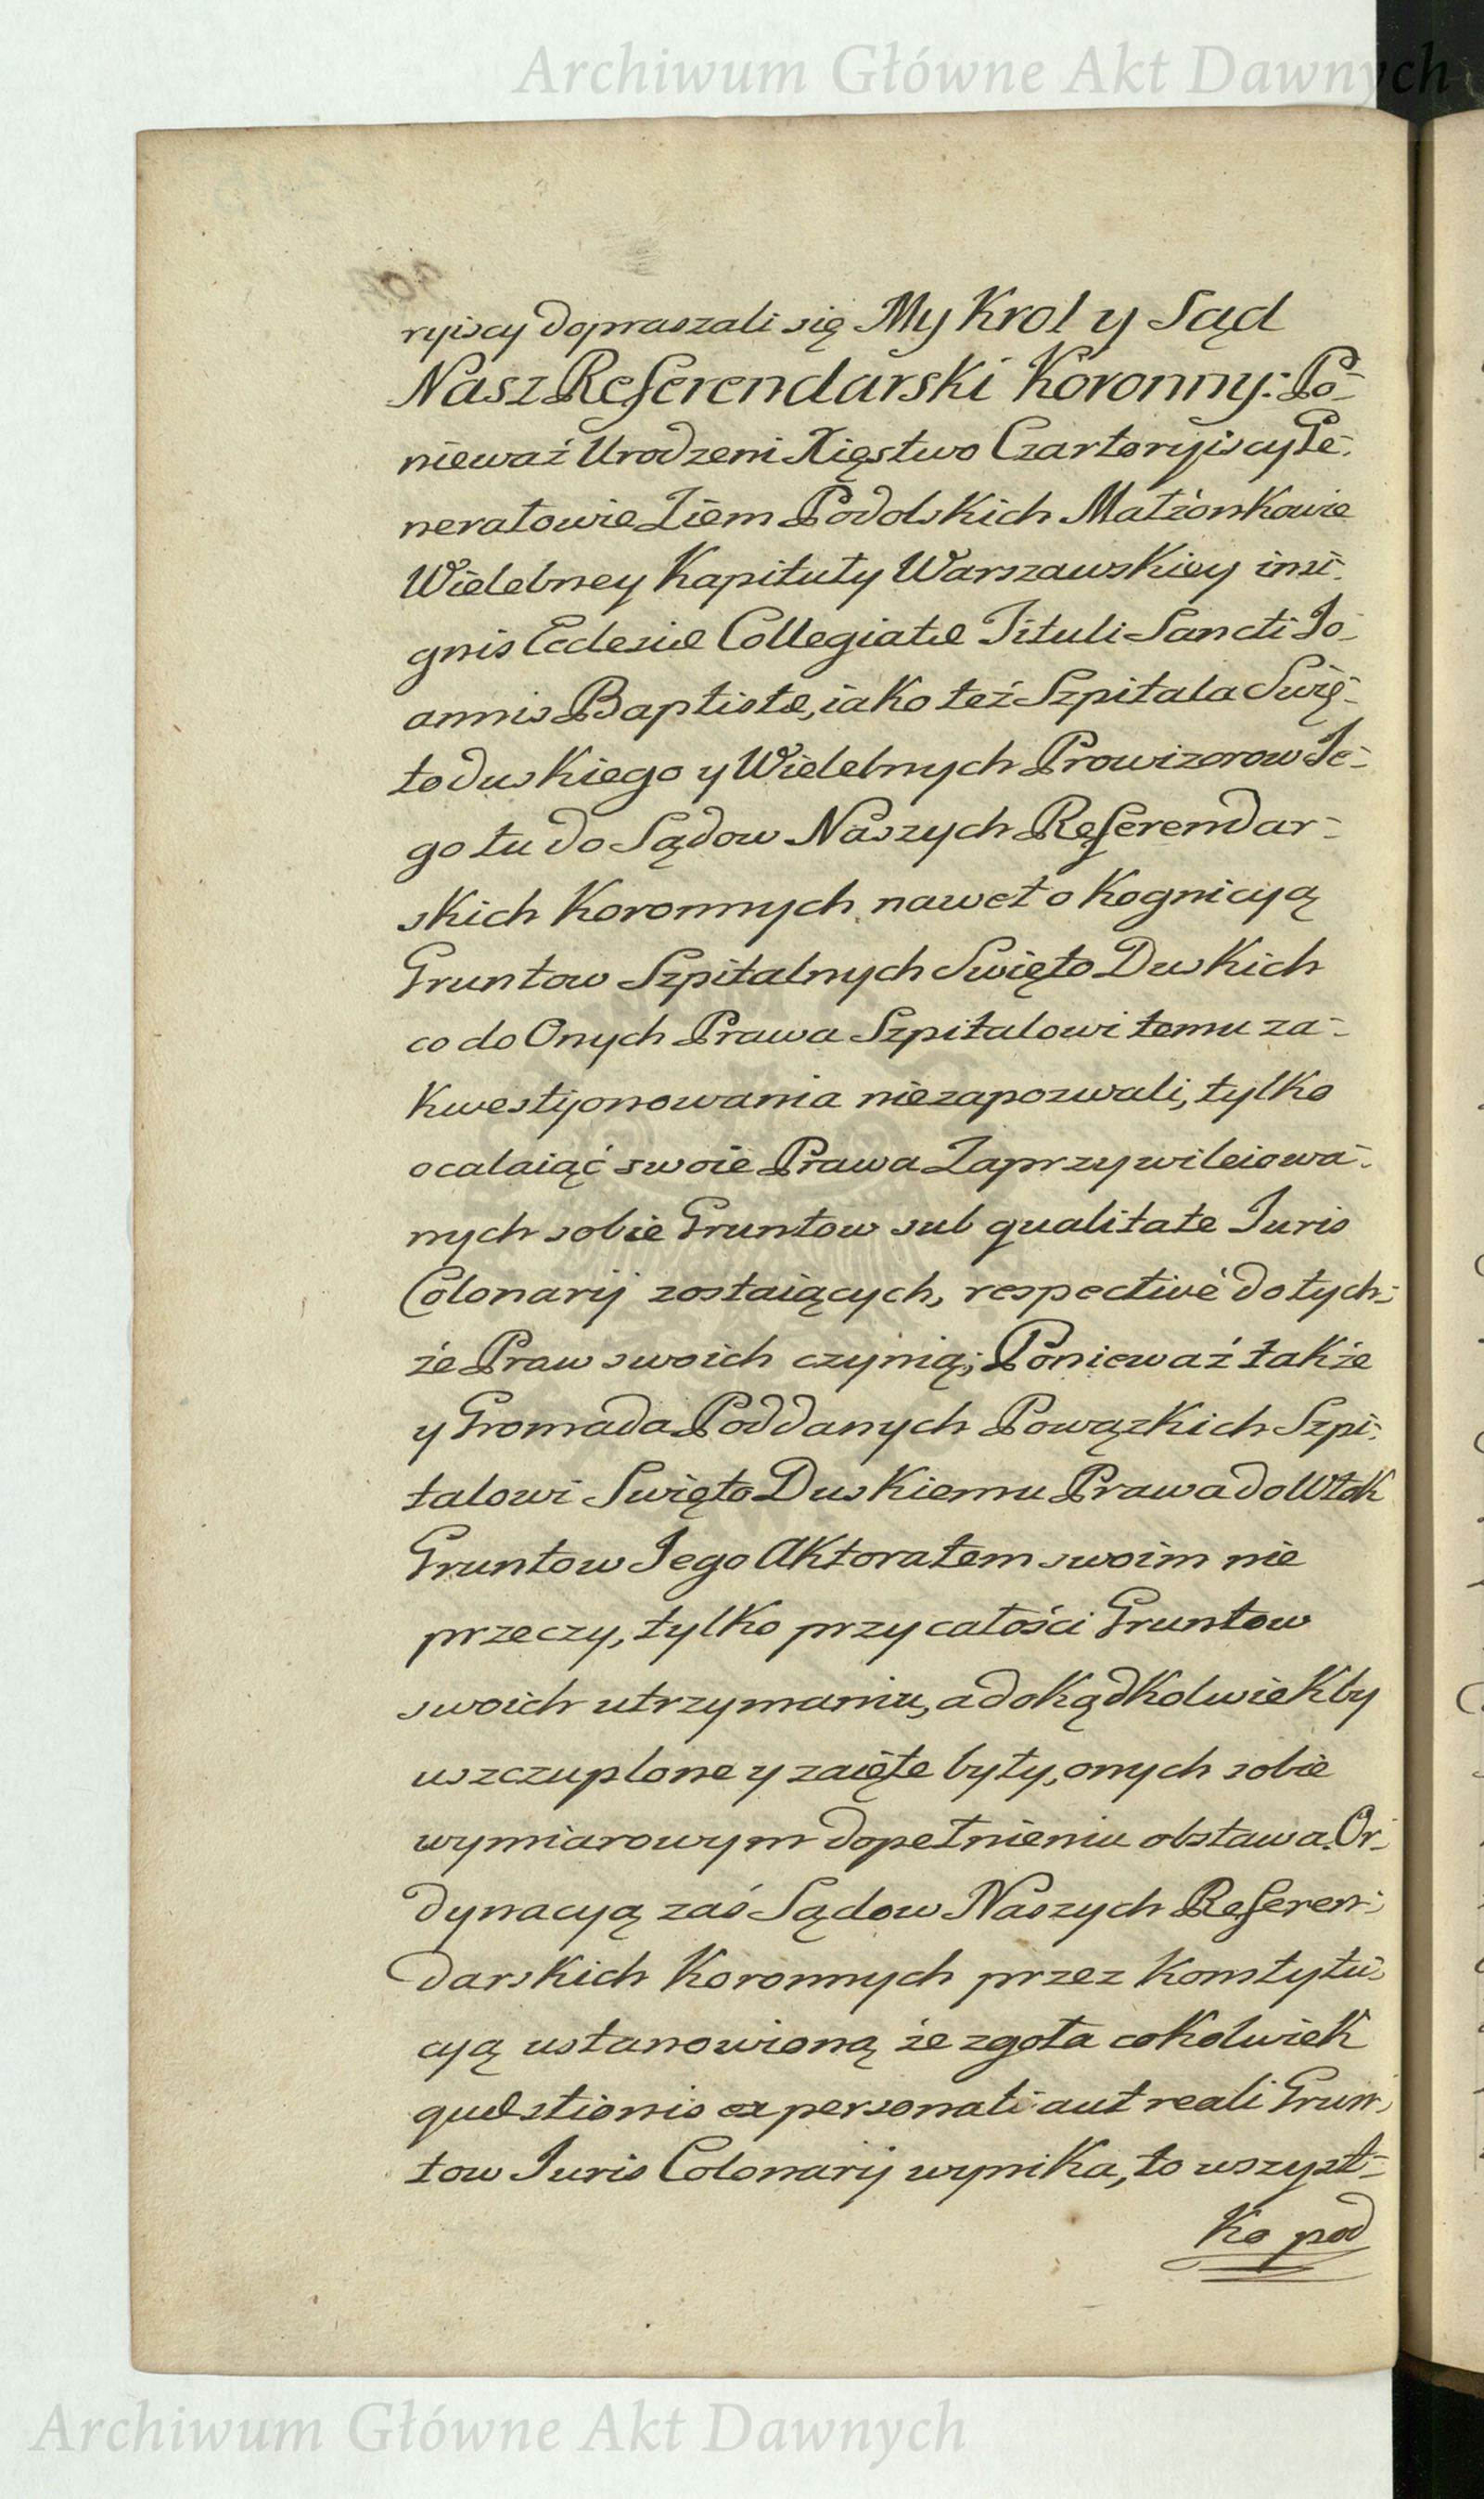 Archiwum Główne Akt Dawnych
ryiscy dopraszali się My Krol y Sąd
Nasz Referendarski Koronny: Po-
nieważ Urodzeni Xięstwo Czartoryiscy Ge-
nerałowie Ziem Podolskich Małżonkowie
Wielebney Kapituły Warszawskiey insi-
gnis Ecclesiæ Collegiatæ Tituli Sancti Jo-
annis Baptistæ, iako też Szpitala Swię-
toduskiego y Wielebnych Prowizorow Je-
go tu do Sądow Naszych Referendar-
skich Koronnych nawet o Kognicyą
Gruntow Szpitalnych Swięto Duskich
co do Onych Prawa Szpitalowi temu za-
kwestyonowania niezapozwali, tylko
ocalaiąć swoie Prawa Zaprzywileiowa-
nych sobie Gruntow sub qualitate Juris
Colonarij zostaiących, respectivè do tych-
że Praw swoich czynią; Ponieważ także
y Gromada Poddanych Powązkich Szpi-
talowi Swięto Duskiemu Prawa do Włók
Gruntow Jego Aktoratem swoim nie
przeczy, tylko przy całości Gruntow
swoich utrzymaniu, a dokądkolwiekby
uszczuplone y zaięte były, onych sobie
wymiarowym dopełnieniu obstawa. Or-
dynacyą zaś Sądow Naszych Referen-
darskich Koronnych przez Konstytu-
cyą ustanowioną że zgoła cokolwiek
quæstionis ex personali aut reali Grun-
tow Juris Colonarij wynika, to wszyst-
ko pod
Archiwum Główne Akt Dawnych